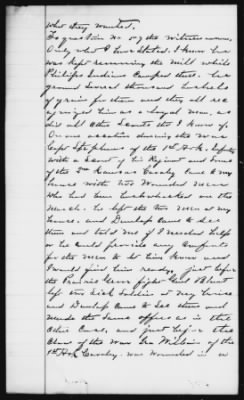 what they wanted.
To question No. 5 the Witness
Only what I have stated. I know he
was kept running the Mill while
Phillips Indians Camped there. he
ground several thousand bushels
of grain for them and they all rec
ognized him as a loyal man, as
did all other Scouts that I know of.
On one occasion during the War
Capt of the 1st Ark.
with a Scout of his Regiment and some
of the Kansas Cavalry Came to my
house with two Wounded men
who had been bushwhacked on the
March. he left the two men at my
house. and Dunlap Came to see
them and told me if I needed help
or he could provide any Comforts
for the men to let him know and
I would find him ready. just before
the Prairie Grove fight Genl Blunt
left two Sick Soldiers at my house
and Dunlap Came to see them and
made the same offer as in the
other Case, and just before the
Close of the War Geo of the
1st Ark Cavalry. was Wounded in a